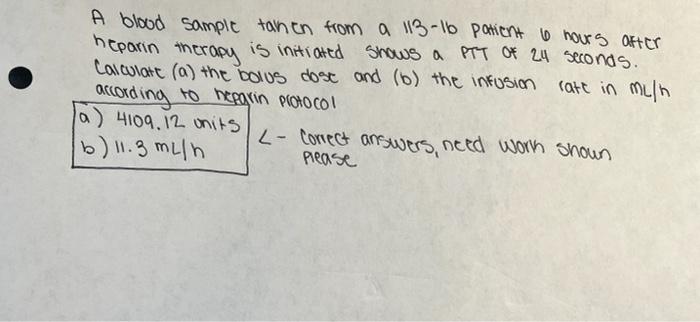 A blood sample taken from a 113-lb patient 6 hours after
heparin therapy is initiated shows a PTT of 24 seconds.
Calculate (a) the bolus dose and (b) the infusion rate in mL/h
according to heparin protocol
a) 4109.12 units
b) 11.3 mL/h
<- Correct answers, need work shown
please